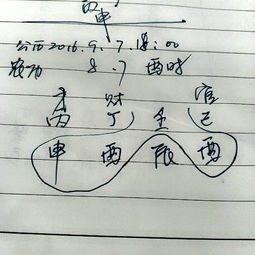 丙申
公历2016.9.7.18:00
农历 8.7 酉时
才 财 官
丙 丁 壬 己
申 酉 辰 酉